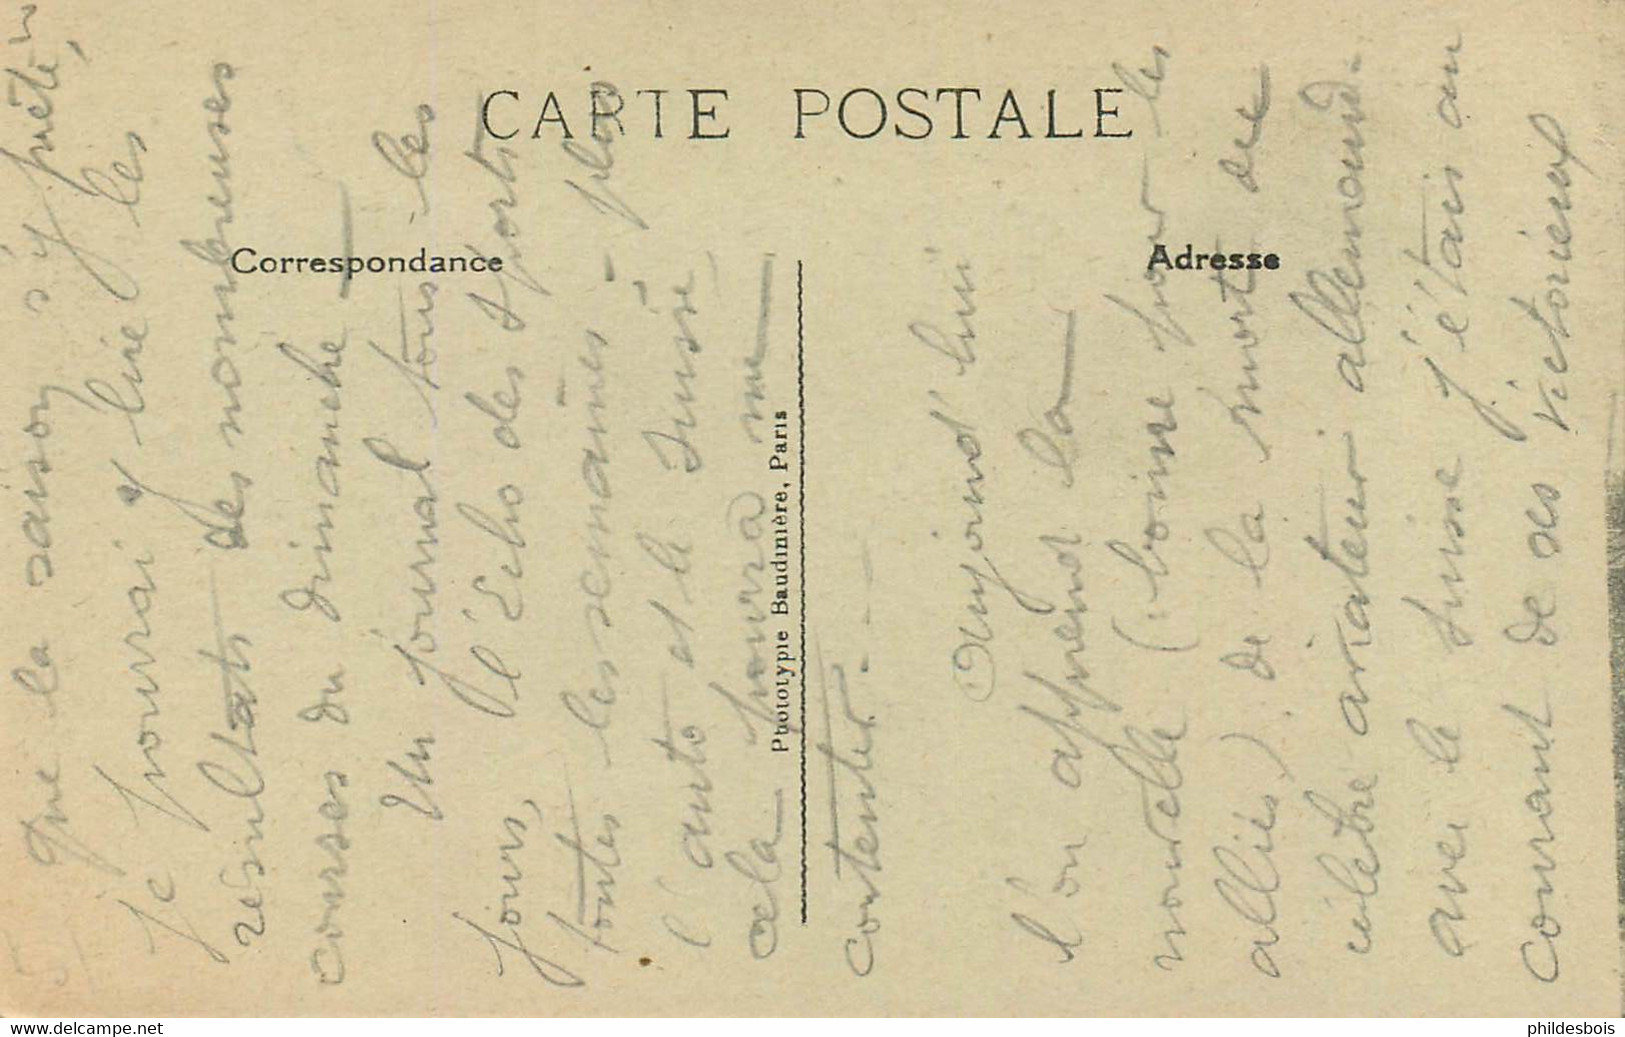 CARTE POSTALE
Correspondance
Adresse
Phototypie Baudinière, Paris
5
que la saison s'y prête,
je pourrai y lire les
résultats des nombreuses
courses du dimanche
Un journal tous les
jours, l'Echo des Sports
toutes les semaines - plus
l'auto et le Suisse
cela pourra me
contenter. - - -
Aujourd'hui
l'on apprend la
nouvelle (: bonne pour les
alliés) de la mort du
célèbre aviateur allemand.
avec le Suisse j'étais au
courant de ses victorieux
www.delcampe.net
phildesbois